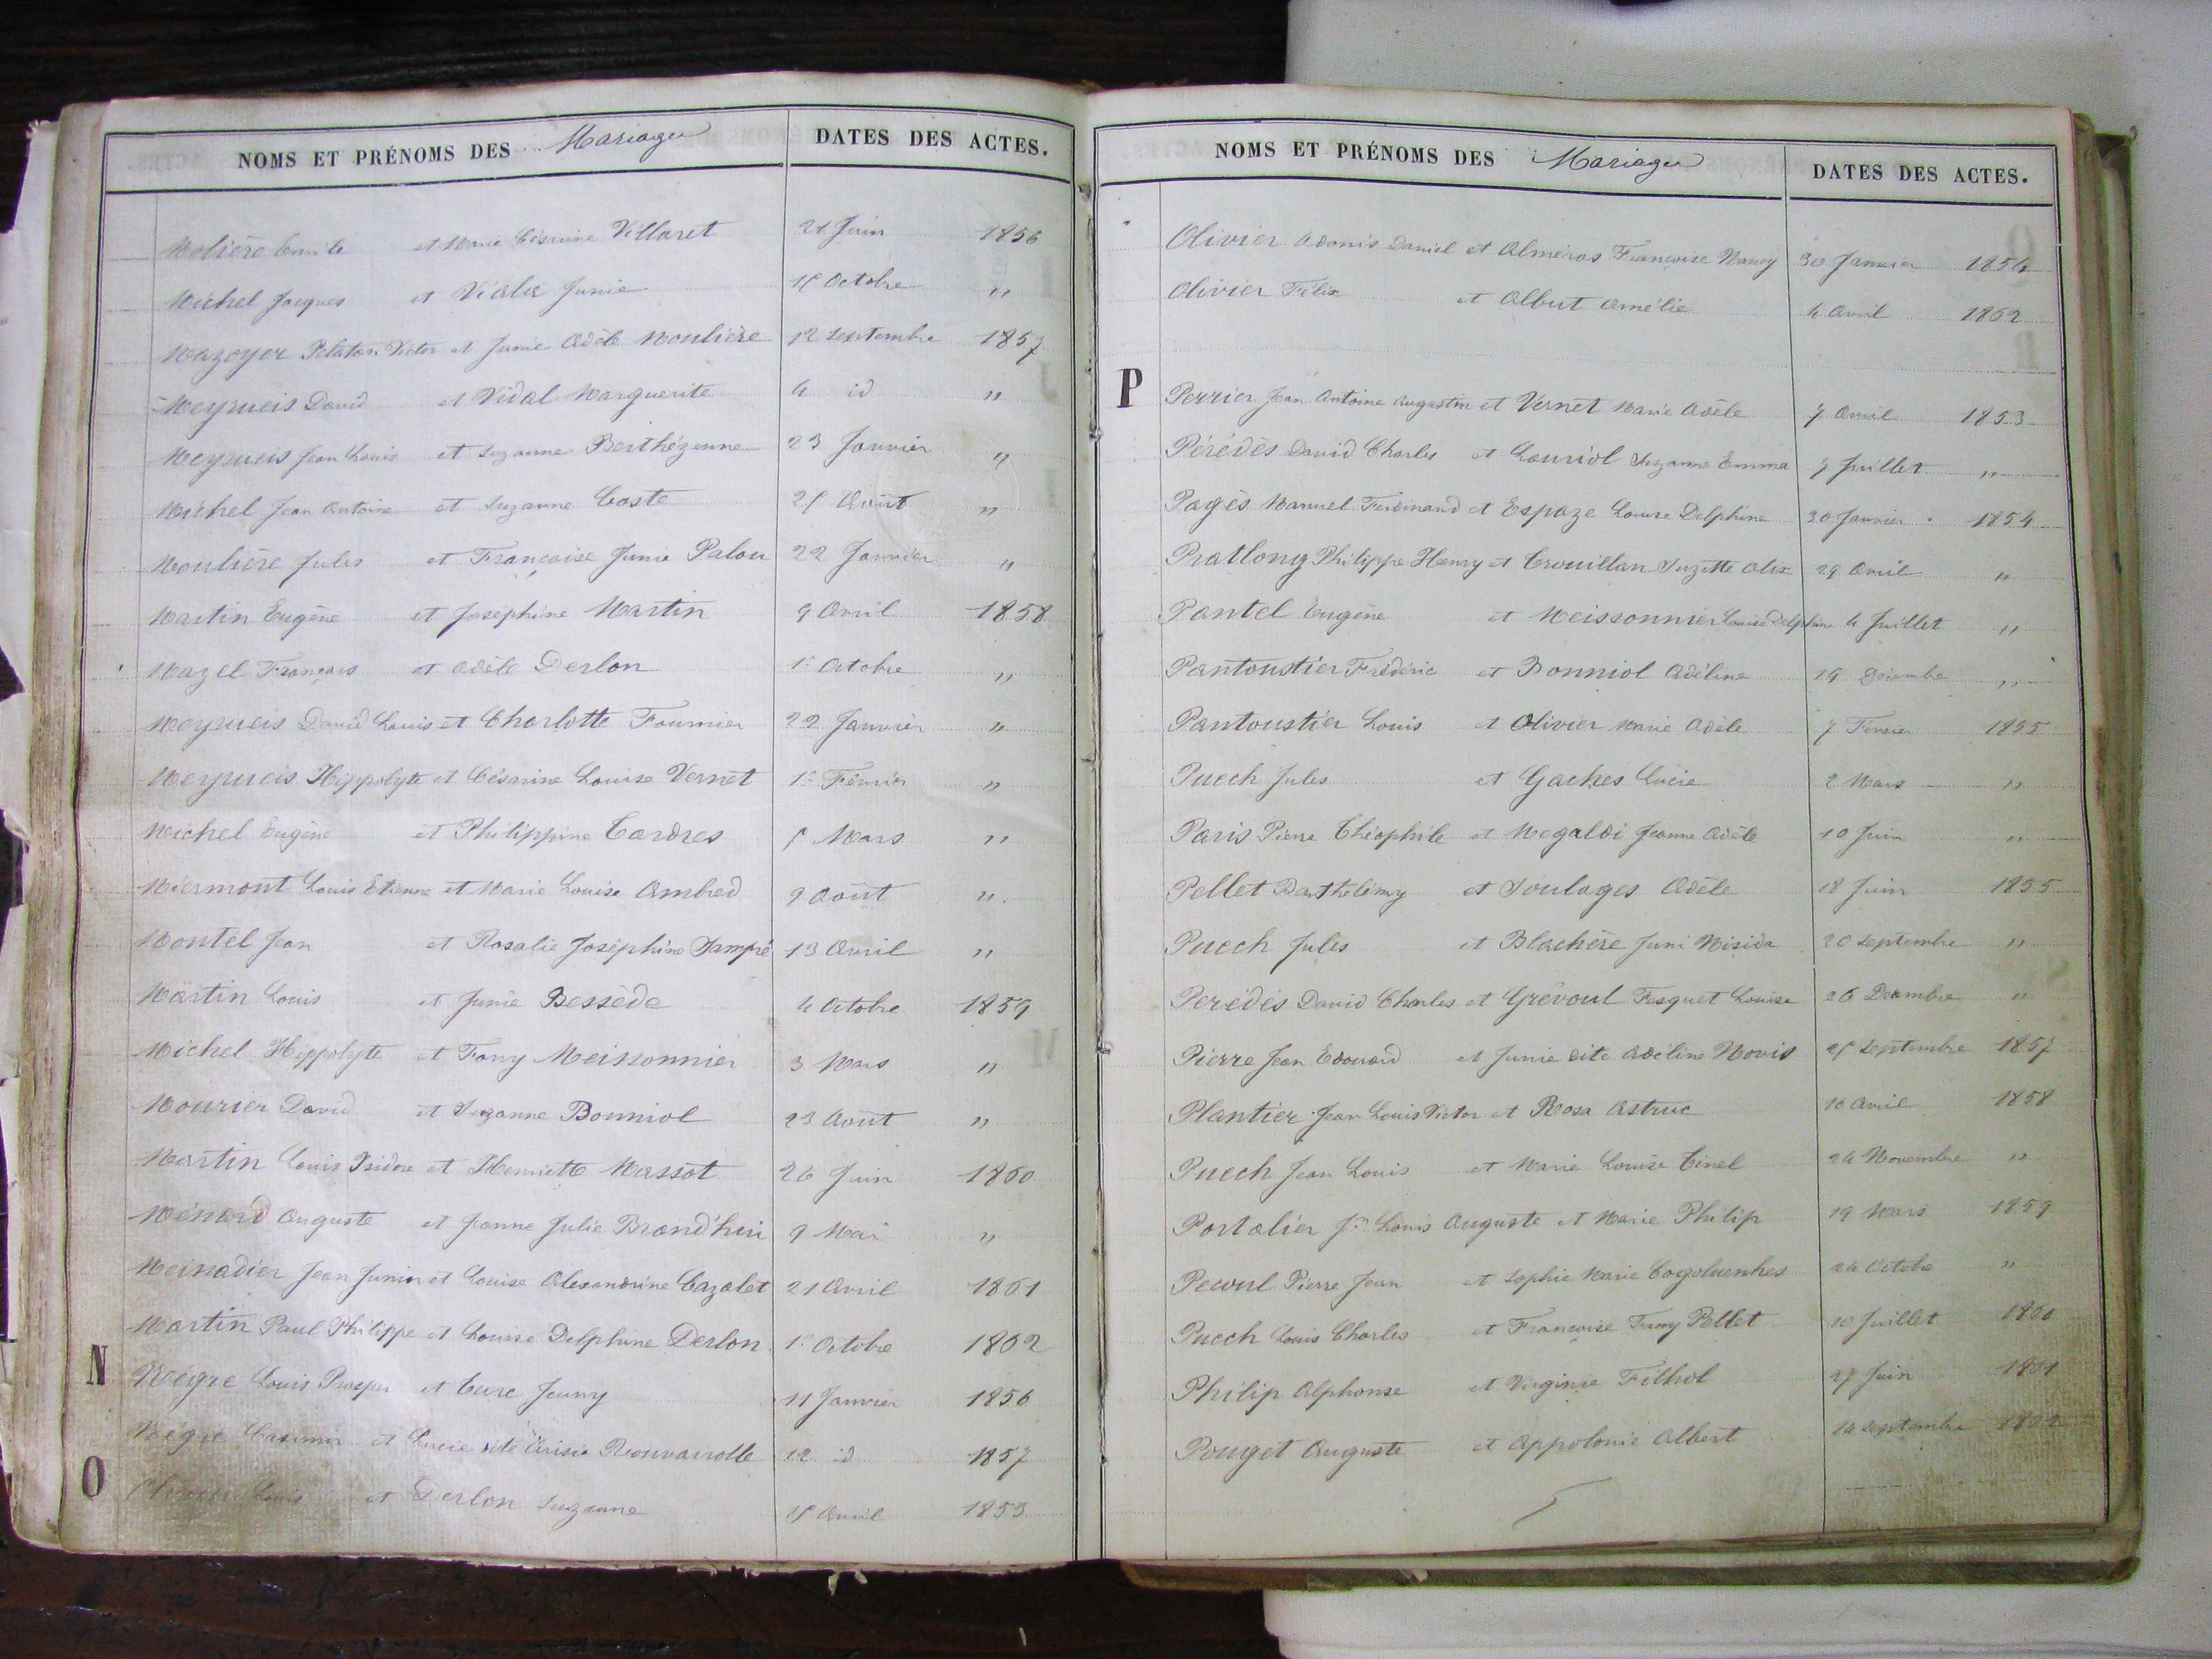 NOMS ET PRÉNOMS DES Mariages DATES DES ACTES.
Molière Emile et Marie Césarine Villaret 21 Juin 1856
Michel Jacques et Viala Junie 15 Octobre "
Mazoyer Victor et Junie Adèle Moulière 12 Septembre 1857
Meyrueis David et Vidal Marguerite 4 id "
Meyrueis Jean Louis et Suzanne Berthézenne 23 Janvier "
Michel Jean Antoine et Suzanne Coste 25 Août "
Moulière Jules et Françoise Junie Palou 22 Janvier "
Martin Eugène et Joséphine Martin 9 Avril 1858
Mazel François et Adèle Derlon 1er Octobre "
Meyrueis David Louis et Charlotte Fournier 22 Janvier "
Meyrueis Hippolyte et Césarine Louise Vernet 1er Février "
Michel Eugène et Philippine Cardres 5 Mars "
Miermont Louis Etienne et Marie Louise Ambred 9 Août "
Montel Jean et Rosalie Joséphine Sampré 13 Avril "
Martin Louis et Junie Bessède 4 Octobre 1859
Michel Hippolyte et Fany Meissonnier 3 Mars "
Mourier David et Suzanne Bonniol 23 Août "
Martin Louis Isidore et Henriette Massot 26 Juin 1860
Ménard Auguste et Jeanne Julie Brand'hui 9 Mai "
Meinadier Jean Junior et Louise Alexandrine Cazalet 21 Avril 1861
Martin Paul Philippe et Louise Delphine Derlon 1er Octobre 1862
N
Nègre Louis Prosper et Jenny 11 Janvier 1856
Nègre Casimir et Lucie dite 12 id 1857
O
Olivier Louis et Derlon Suzanne 15 Avril 1853
NOMS ET PRÉNOMS DES Mariages DATES DES ACTES.
Olivier Adonis Daniel et Alméras Françoise Nancy 30 Janvier 1854
Olivier Félix et Albut Amélie 4 Avril 1862
P
Perrier Jean Antoine Augustin et Vernet Marie Adèle 7 Avril 1853
Pérédès David Charles et Lauriol Suzanne Emma 7 Juillet "
Pagès Manuel Ferdinand et Espaze Louise Delphine 30 Janvier 1854
Pratlong Philippe Henry et Crouillan Suzette Alix 29 Avril "
Pantel Eugène et Meissonnier Louise Delphine 4 Juillet "
Pantoustier Frédéric et Bonniol Adéline 19 Décembre "
Pantoustier Louis et Olivier Marie Adèle 7 Février 1855
Puech Jules et Gaches Lucie 2 Mars "
Paris Pierre Théophile et Megaldi Jeanne Adèle 10 Juin "
Pellet Barthélémy et Soulages Adèle 18 Juin 1855
Puech Jules et Blachère Juni Nisida 20 Septembre "
Perédés David Charles et Grévoul Fesquet Louise 26 Décembre "
Pierre Jean Edouard et Junie dite Adéline Novis 25 Septembre 1857
Plantier Jean Louis Victor et Rosa Astruc 16 Avril 1858
Puech Jean Louis et Marie Louise Cinel 24 Novembre "
Portalier Jn Louis Auguste et Marie Philip 19 Mars 1859
Pecoul Pierre Jean et Sophie Marie Cogoluenhes 24 Octobre "
Puech Louis Charles et Françoise Fanny Pellet 10 Juillet 1860
Philip Alphonse et Virginie Filhol 27 Juin 1861
Pouget Auguste et Appolonie Albert 14 Septembre 1862